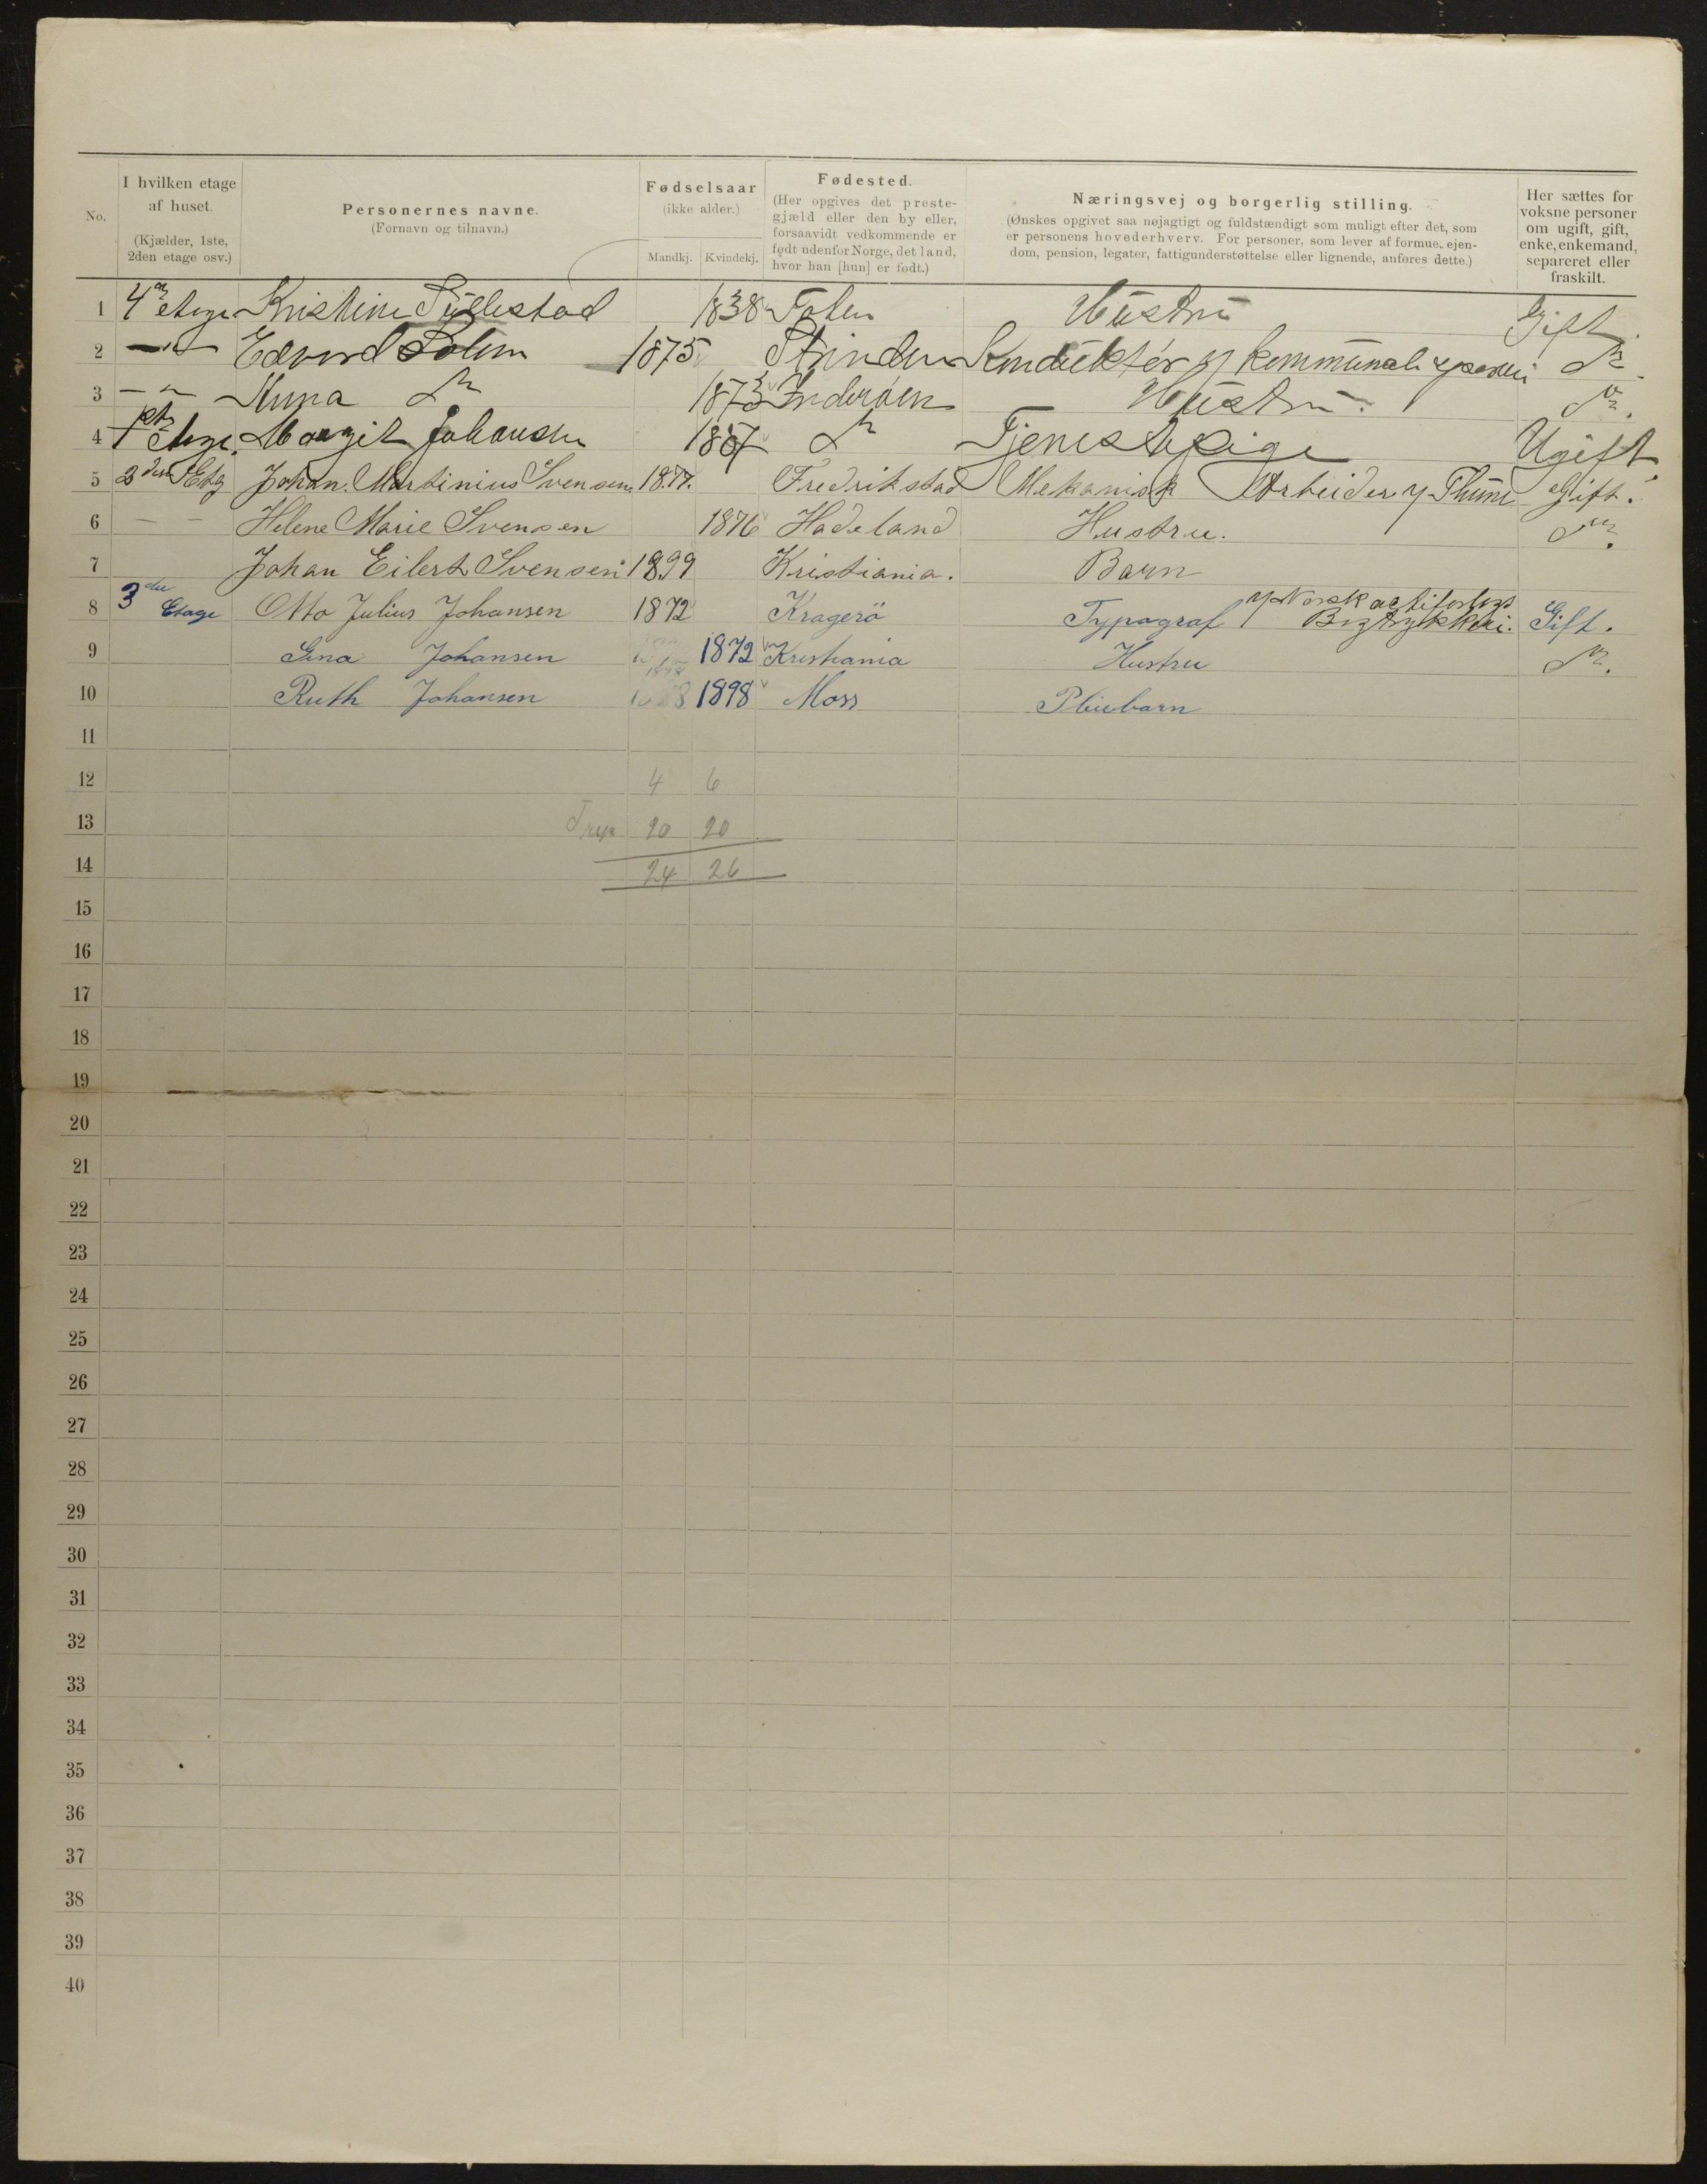 No.
I hvilken etage
af huset.
(Kjælder, 1ste,
2den etage osv.)
Personernes navne.
(Fornavn og tilnavn.)
Fødselsaar
(ikke alder.)
Mandkj. Kvindekj.
Fødested.
(Her opgives det preste-
gjæld eller den by eller,
forsaavidt vedkommende er
født udenfor Norge, det land,
hvor han [hun] er født.)
Næringsvej og borgerlig stilling.
(Ønskes opgivet saa nøjagtigt og fuldstændigt som muligt efter det, som
er personens hovederhverv. For personer, som lever af formue, ejen-
dom, pension, legater, fattigunderstøttelse eller lignende, anføres dette.)
Her sættes for
voksne personer
om ugift, gift,
enke, enkemand,
separeret eller
fraskilt.
1 4 etage Kristine 1838 Hustru Gift
2 — " — Edvard Solem 1875 Strinden Konduktør Do
3 — " — Anna Do 1873 Inderøen Hustru. Do.
4 1st etage. Margit Johansen Do Tjenestepige Ugift
5 2den Etg Johan. Martinius Svensen. 1877. Fredrikstad Mekanisk Arbeider v Thune Gift.
6 — — Helene Marie Svensen 1876 Hadeland Hustru. Do.
7 Johan Eilert Svensen 1899 Kristiania. Barn
8 3die Etage Otto Julius Johansen 1872 Kragerö Typograf v Norsk Bogtrykkeri. Gift.
9 Gina Johansen 1872 Kristiania Hustru Do.
10 Ruth Johansen 1898 Moss Pleiebarn
11
12 4 6
13 20 20
14 24 26
15
16
17
18
19
20
21
22
23
24
25
26
27
28
29
30
31
32
33
34
35
36
37
38
39
40